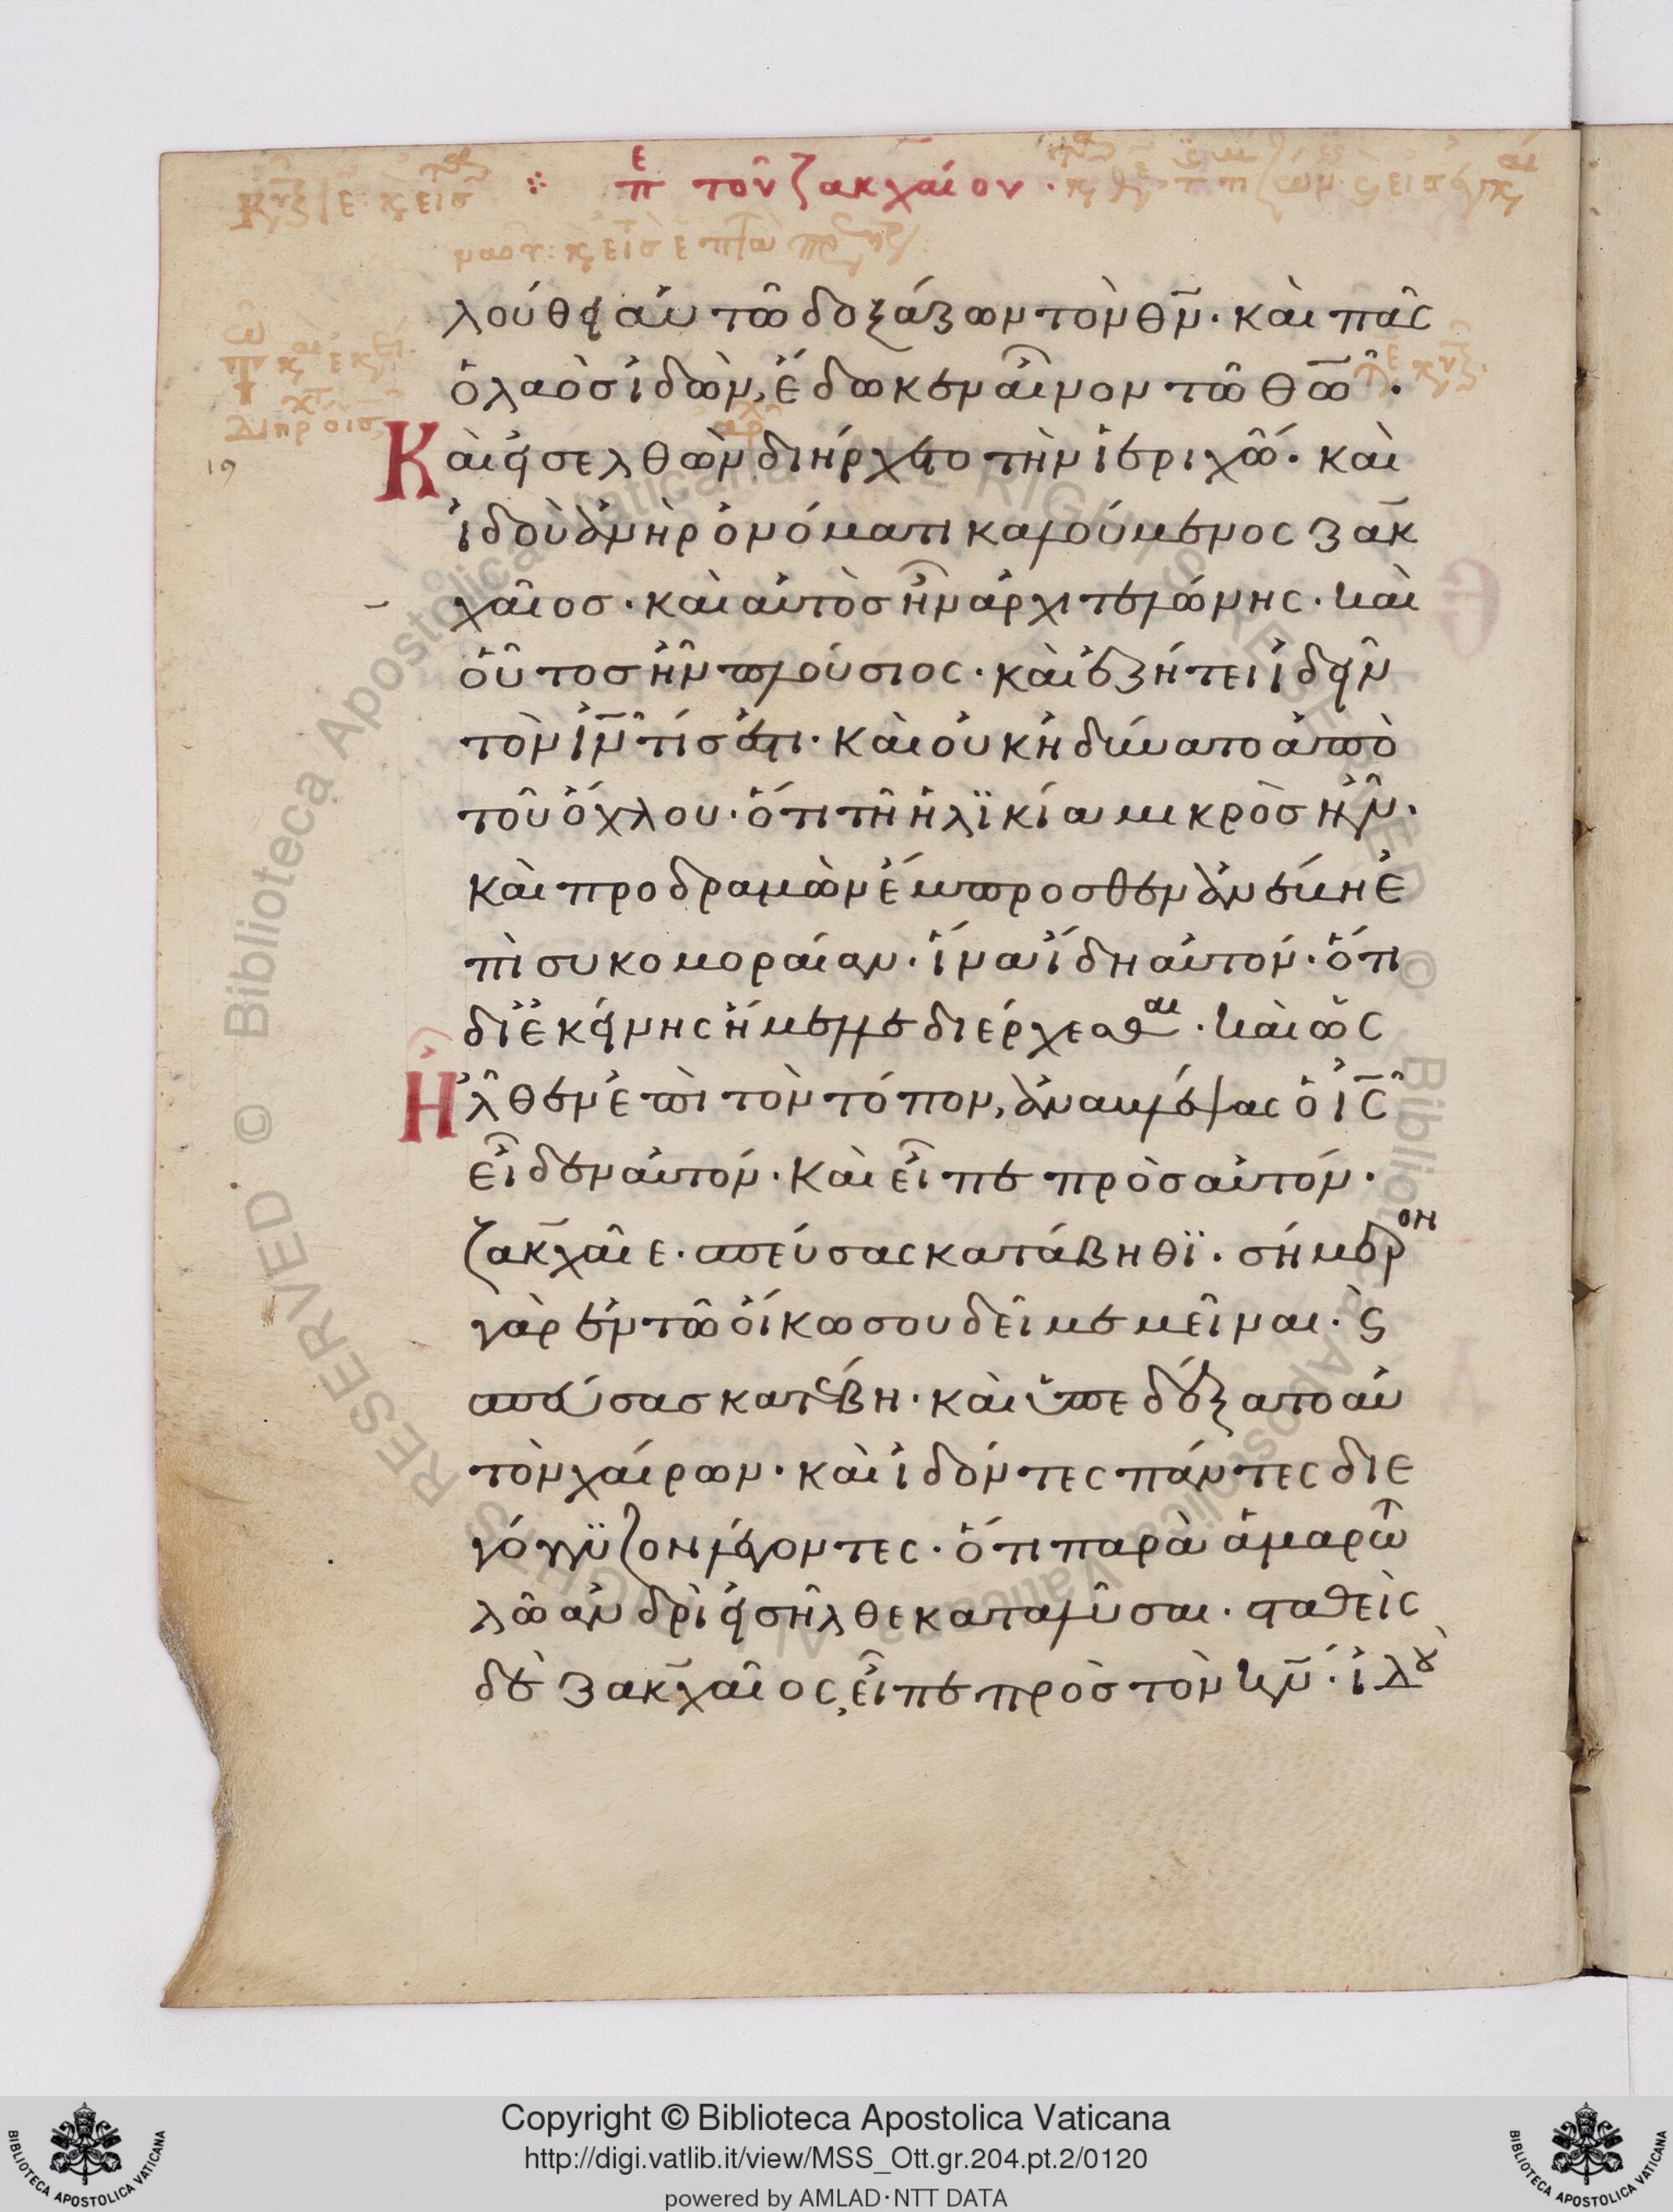 π ε τὸν ζακχαίον ·
λούθει αὐτῶ δοξάζων τὸν θ̅ν̅ · καὶ πᾶς
ὁ λαὸς ἰδὼν, ἔδωκεν αἶνον τῶ θ̅ω̅ ·
Καὶ εἰσελθὼν διήρχετο τὴν ἱεριχῶ · καὶ
ἰδοὺ ἀνὴρ ὀνόματι καλούμενος ζακ
χαῖος · καὶ αὐτὸς ἦν ἀρχιτελώνης · καὶ
οὗτος ἦν πλούσιος · καὶ ἐζήτει ἰδεῖν
τὸν ι̅ν̅ τίς ἐστι · καὶ οὐκ ἠδύνατο ἀπὸ
τοῦ ὄχλου · ὅτι τῆ ἡλϊκία μικρὸς ἦν ·
καὶ προδραμὼν ἔμπροσθεν ἀνέβη ἐ
πὶ συκομοραίαν · ἵνα ἴδη αὐτόν · ὅτι
δι ἐκείνης ἤμελλε διέρχεσθαι · καὶ ὡς
Ηλθεν ἐπὶ τὸν τόπον, ἀναβλέψας ὁ ι̅ς̅
εἶδεν αὐτόν · καὶ εἶπε πρὸς αὐτόν ·
ζακχαῖε · σπεύσας κατάβηθϊ · σήμερον
γὰρ ἐν τῶ οἴκω σου δεῖ με μεῖναι · ϛ
σπεύσας κατέβη · καὶ ὑπεδέξατο αὐ
τὸν χαίρων · καὶ ἰδόντες πάντες διε
γόγγϋζον λέγοντες · ὅτι παρὰ ἁμαρτω
λῶ ἀνδρὶ εἰσῆλθε καταλῦσαι · σταθεὶς
δὲ ζακχαῖος, εἶπε πρὸς τὸν κ̅ν̅ · ἰδοὺ
19
© Biblioteca Apostolica Vaticana ALL RIGHTS RESERVED
Copyright © Biblioteca Apostolica Vaticana
http://digi.vatlib.it/view/MSS_Ott.gr.204.pt.2/0120
powered by AMLAD·NTT DATA
BIBLIOTECA APOSTOLICA VATICANA
BIBLIOTECA APOSTOLICA VATICANA